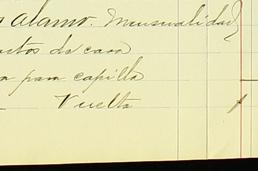 Alamo. Mensualidad
de casa
para capilla
Vuelta